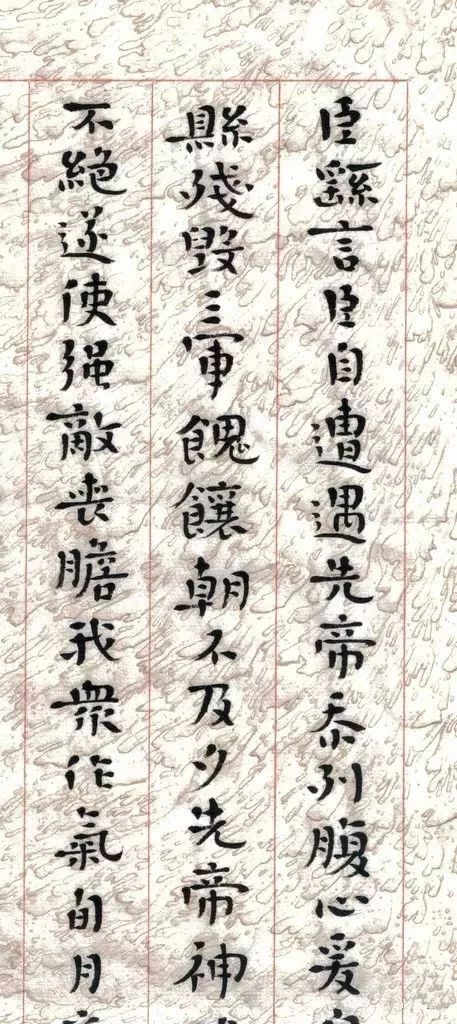 臣繇言臣自遭遇先帝忝列腹心爰
縣殘毀三軍餽饟朝不及夕先帝神
不絕遂使強敵喪膽我衆作氣旬月